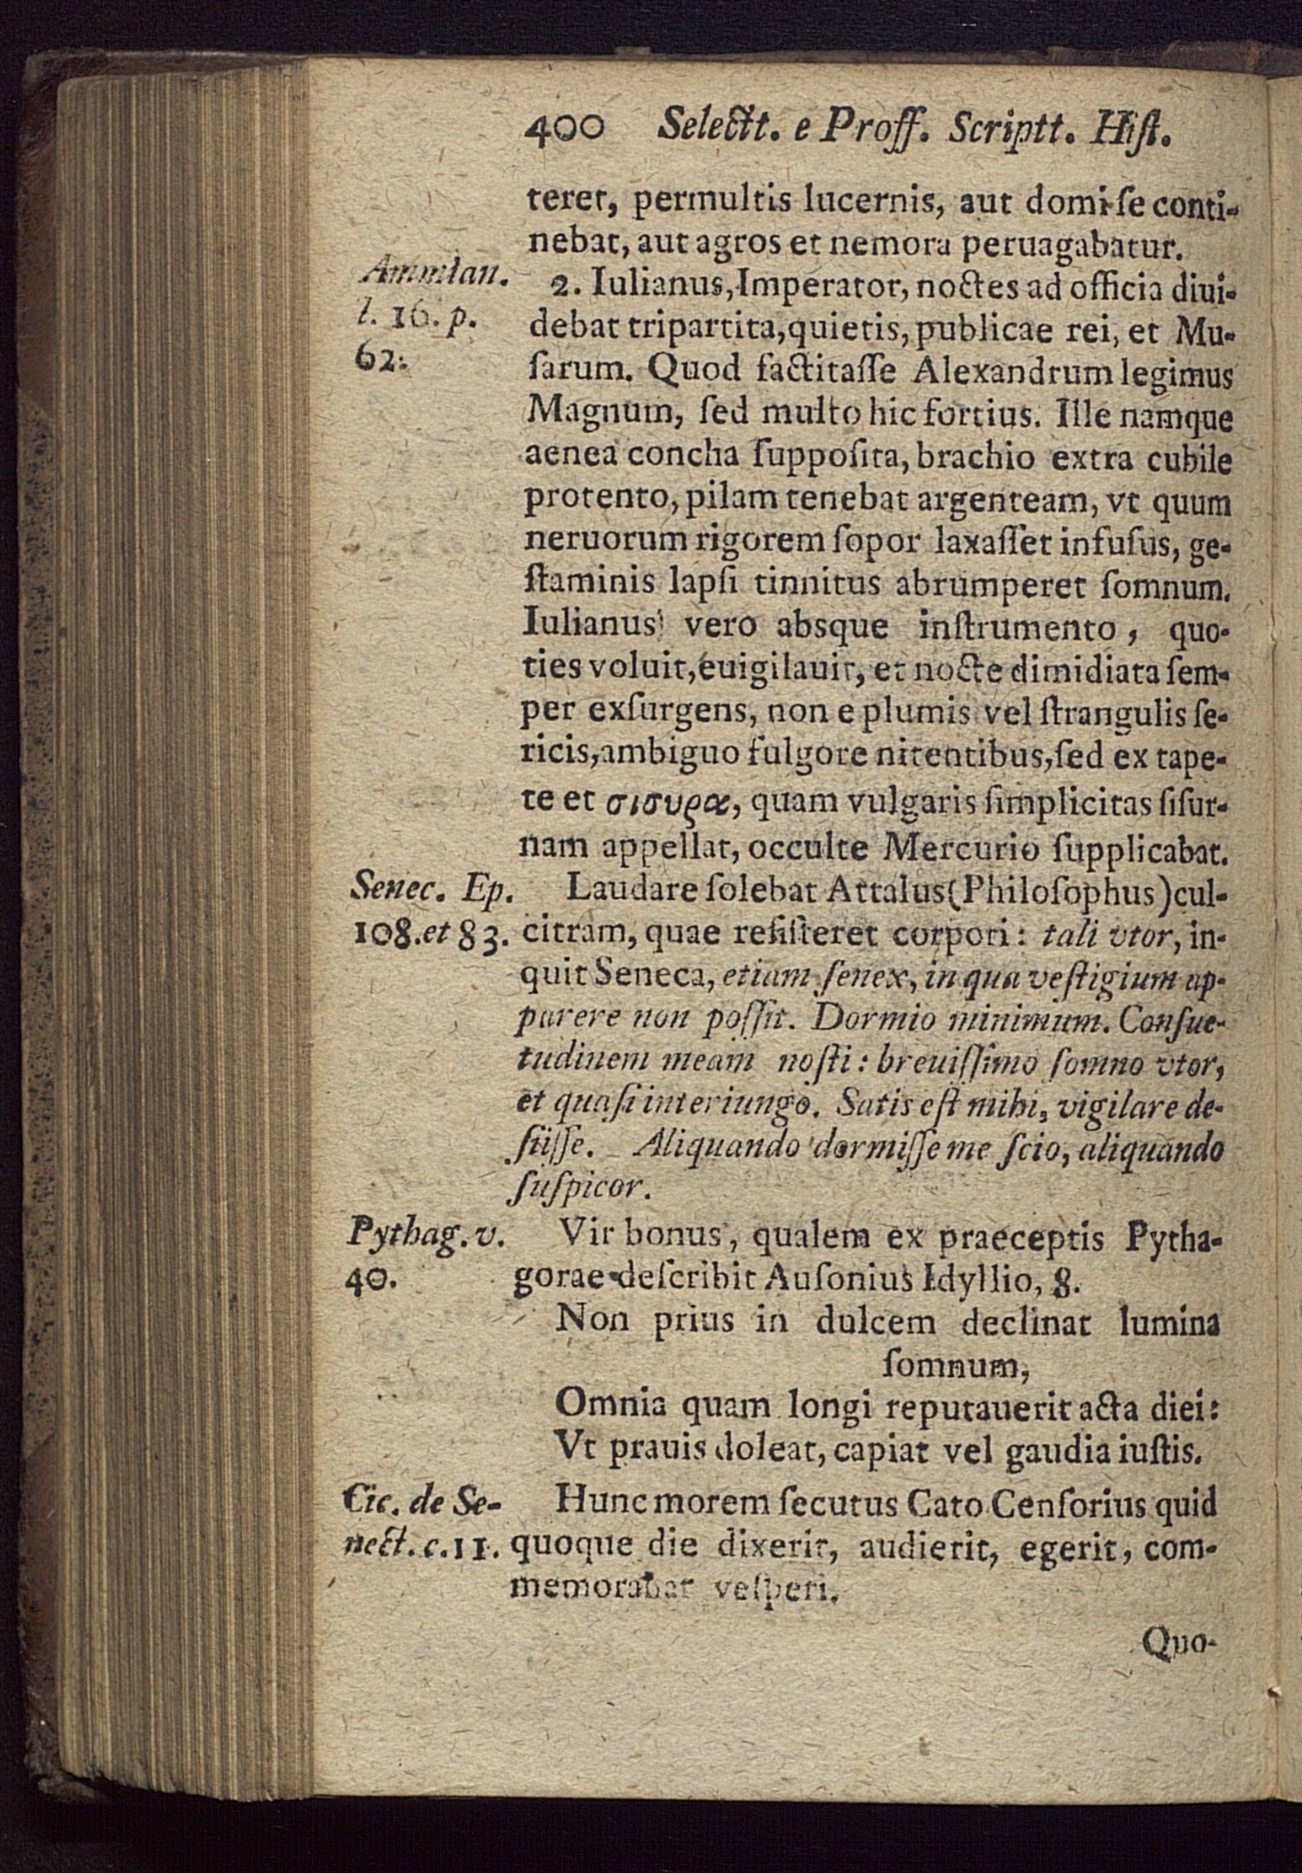 400 Selectt. e Proff. Scriptt. Hiſt.
teret, permultis lucernis, aut domi ſe conti-
nebat, aut agros et nemora peruagabatur.
Ammian.
l. 16. p.
62.
2. Iulianus, Imperator, noctes ad officia diui-
debat tripartita, quietis, publicae rei, et Mu-
ſarum. Quod factitaſſe Alexandrum legimus
Magnum, ſed multo hic fortius. Ille namque
aenea concha ſuppoſita, brachio extra cubile
protento, pilam tenebat argenteam, vt quum
neruorum rigorem ſopor laxaſſet infuſus, ge-
ſtaminis lapſi tinnitus abrumperet ſomnum.
Iulianus vero absque inſtrumento, quo-
ties voluit, euigilauit, et nocte dimidiata ſem-
per exſurgens, non e plumis vel ſtrangulis ſe-
ricis, ambiguo fulgore nitentibus, ſed ex tape-
te et σισυρα, quam vulgaris ſimplicitas ſiſur-
nam appellat, occulte Mercurio ſupplicabat.
Senec. Ep.
108. et 83.
Laudare ſolebat Attalus (Philoſophus) cul-
citram, quae reſiſteret corpori: tali vtor, in-
quit Seneca, etiam ſenex, in qua veſtigium ap-
parere non poſſit. Dormio minimum. Conſue-
tudinem meam noſti: breuiſſimo ſomno vtor,
et quaſi interiungo. Satis eſt mihi, vigilare de-
ſiiſſe. Aliquando dormiſſe me ſcio, aliquando
ſuſpicor.
Pythag. v.
40.
Vir bonus, qualem ex praeceptis Pytha-
gorae deſcribit Auſonius Idyllio, 8.
Non prius in dulcem declinat lumina
ſomnum,
Omnia quam longi reputauerit acta diei:
Vt prauis doleat, capiat vel gaudia iuſtis.
Cic. de Se-
nect. c. 11.
Hunc morem ſecutus Cato Cenſorius quid
quoque die dixerit, audierit, egerit, com-
memorabat veſperi.
Quo-